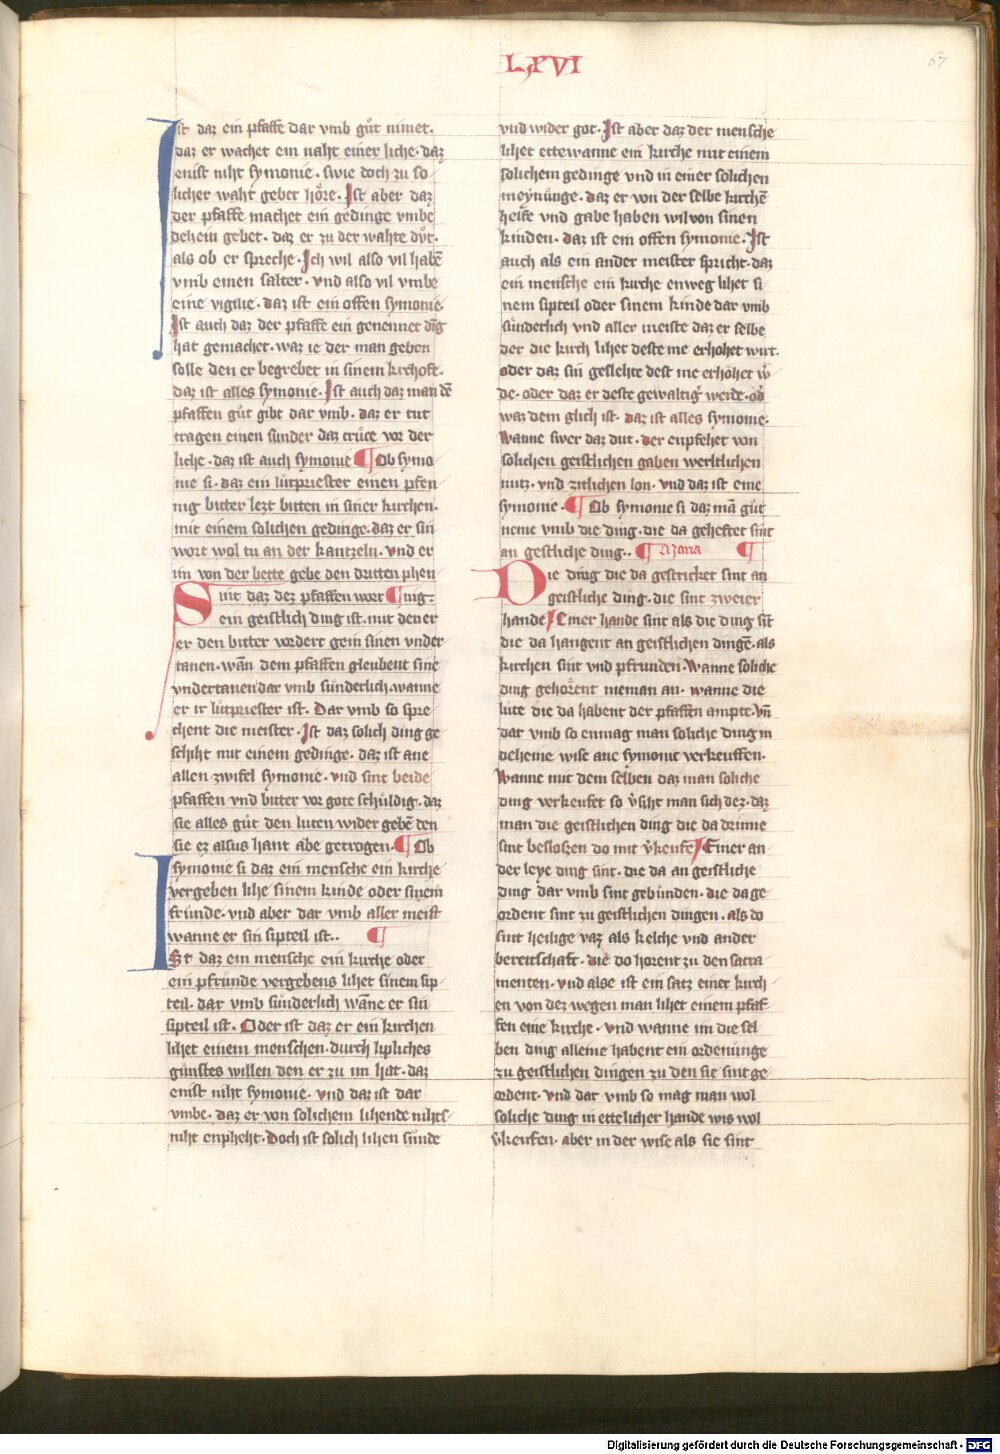 LXVI
67
Ist daz ein pfaffe dar vmb guͦt nimet.
daz er wachet ein naht einer liche. daz
enist niht symonie. swie doch zu so
licher waht gebet hoͤre. Ist aber daz
der pfaffe machet ein gedinge vmbe
dehein gebet. daz er zu der wahte duͤt.
als ob er spreche. Ich wil also vil habē
vmb einen salter. vnd also vil vmbe
eine vigilie. daz ist ein offen symonie.
Ist auch daz der pfaffe ein genennet dīg
hat gemachet. waz ie der man geben
solle den er begrebet in sinem kirchoff.
daz ist alles symonie. Ist auch daz man dē
pfaffen guͦt gibt dar vmb. daz er tut
tragen einen sunder daz cruͤce vor der
liche. daz ist auch symonie ¶ Ob symo
nie si. daz ein luͤtpriester einen pfen
nig bitter lezt bitten in siner kirchen.
mit einem solichen gedinge. daz er sin
wort wol tu an der kantzeln. vnd er
im von der bette gebe den dritten phen
Sint daz dez pfaffen wort ¶ nig.
ein geistlich ding ist. mit den er
er den bitter vordert gein sinen vnder
tanen. wān dem pfaffen gleubent sine
vndertanen dar vmb suͤnderlich. wanne
er ir luͤtpriester ist. Dar vmb so spre
chent die meister. Ist daz solich ding ge
schiht mit einem gedinge. daz ist ane
allen zwifel symonie. vnd sint beide
pfaffen vnd bitter vor gote schuͤldig. daz
sie alles guͦt den luten wider gebē den
sie ez alsus hant abe getrogen. ¶ Ob
symonie si daz ein mensche ein kirche
vergeben lihe sinem kinde oder sinem
fruͤnde. vnd aber dar vmb aller meist
wanne er sin sipteil ist.. ¶
Ist daz ein mensche ein kirche oder
ein pfruͤnde vergebens lihet sinem sip
teil. dar vmb suͤnderlich wāne er sin
sipteil ist. Oder ist daz er ein kirchen
lihet einem menschen. durch lipliches
guͤnstes willen den er zu im hat. daz
enist niht symonie. vnd daz ist dar
vmbe. daz er von solichem lihende nihts
niht enpheht. Doch ist solich lihen suͤnde
vnd wider got. Ist aber daz der mensche
lihet ettewanne ein kirche mit einem
solichem gedinge vnd in einer solichen
meynuͤnge. daz er von der selbe kirchē
helfe vnd gabe haben wil von sinen
kinden. daz ist ein offen symonie. Ist
auch als ein ander meister spricht. daz
ein mensche ein kirche enweg lihet si
nem sipteil oder sinem kinde dar vmb
suͤnderlich vnd aller meiste daz er selbe
der die kirch lihet deste me erhohet wirt.
oder daz sin geslehte dest me erhoͤhet w̉
de. oder daz er deste gewaltig̉ werde. od̉
waz dem glich ist. daz ist alles symonie.
Wanne swer daz dut. der enpfehet von
solichen geistlichen gaben werltlichen
nutz. vnd zitlichen lon. vnd daz ist eine
symonie. ¶ Ob symonie si daz mā guͦt
neme vmb die ding. die da geheftet sint
an gestliche ding.. ¶ Azaria ¶
Die ding die da gestricket sint an
geistliche ding. die sint zweier
hande. Einer hande sint als die ding sīt
die da hangent an geistlichen dingē. als
kirchen sint vnd pfrunden. Wanne soliche
ding gehoͤrent nieman an. wanne die
lute die da habent der pfaffen ampte. vn̄
dar vmb so enmag man soliche ding in
deheine wise ane symonie verkeuffen.
Wanne mit dem selben daz man soliche
ding verkeufet so v̉siht man sich dez. daz
man die geistlichen ding die da drinne
sint besloszen do mit v̉keufe. Einer an
der leye ding sint. die da an geistliche
ding dar vmb sint gebuͤnden. die da ge
ordent sint zu geistlichen dingen. als do
sint heilige vaz als kelche vnd ander
bereitschaft. die do horent zu den sacra
menten. vnd alse ist ein satz einer kirch
en von dez wegen man lihet einem pfaf
fen eine kirche. vnd wanne im die sel
ben ding alleine habent ein ordenuͤnge
zu geistlichen dingen zu den sie sint ge
ordent. vnd dar vmb so mag man wol
soliche ding in ettelicher hande wis wol
v̉keufen. aber in der wise als sie sint
Digitalisierung gefördert durch die Deutsche Forschungsgemeinschaft - DFG